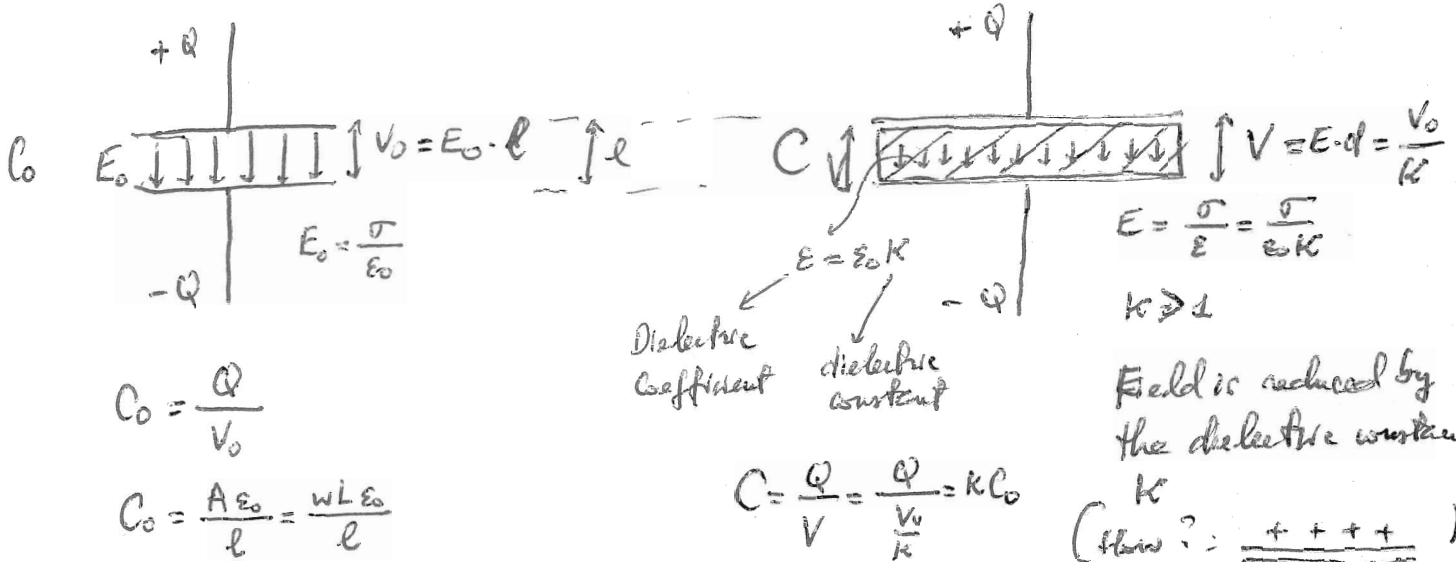 +Q
C₀ E₀ V₀ = E₀ · ℓ ℓ
E₀ = σ/ε₀
-Q
C₀ = Q/V₀
C₀ = Aε₀/ℓ = wLε₀/ℓ
+Q
C V = E·d = V₀/K
E = σ/ε = σ/ε₀K
ε = ε₀K
-Q
K ≥ 1
Dielectric
Coefficient
dielectric
constant
Field is reduced by
the dielectric constan
K
C = Q/V = Q/(V₀/K) = KC₀
(How?: + + + + )